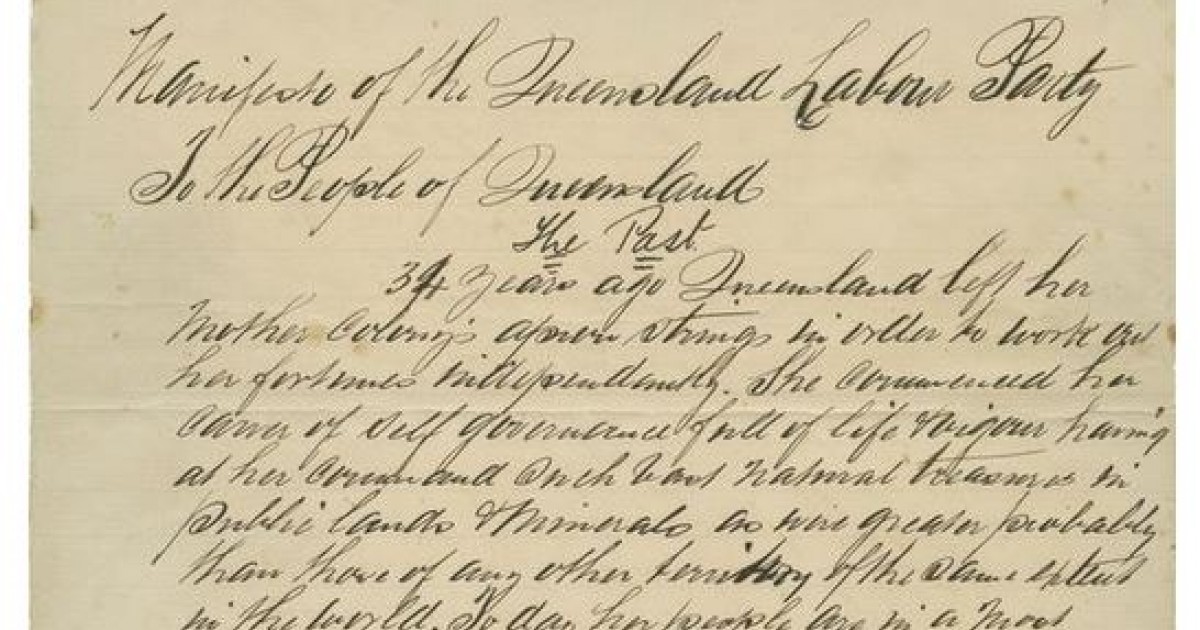 Manifesto of the Queensland Labour Party
To the People of Queensland
The Past
34 years ago Queensland left her
Mother Colony's apron strings in order to work out
her fortunes independantly. She commenced her
career of self governance full of life & vigour having
at her command such vast natural treasures in
public lands & minerals as were greater probably
than those of any other territory of the same extent
in the world. To day her people are in a most